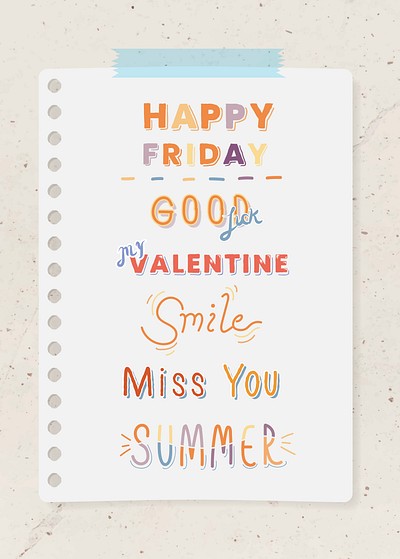 HAPPY
FRIDAY
GOOD luck
my VALENTINE
Smile
Miss You
SUMMER